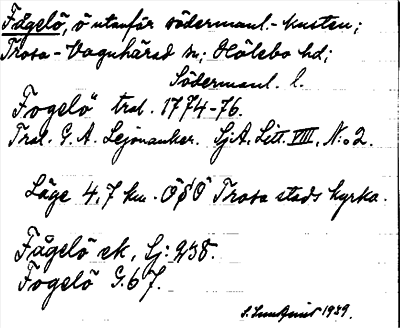 Fågelö, ö utanför södermanl.-kusten;
Trosa-Vagnhärad sn; Hölebo hd;
Södermanl. l.
"Fogelö" tral. 1774-76.
Tral. G. A. Lejonanker. Sj.A. Litt. VIII, N:o 2.
Läge 4,7 km. ÖSÖ Trosa stads kyrka.
Fågelö ek, Sj: 238.
Fogelö G. 67.
S. Lundquist 1939.